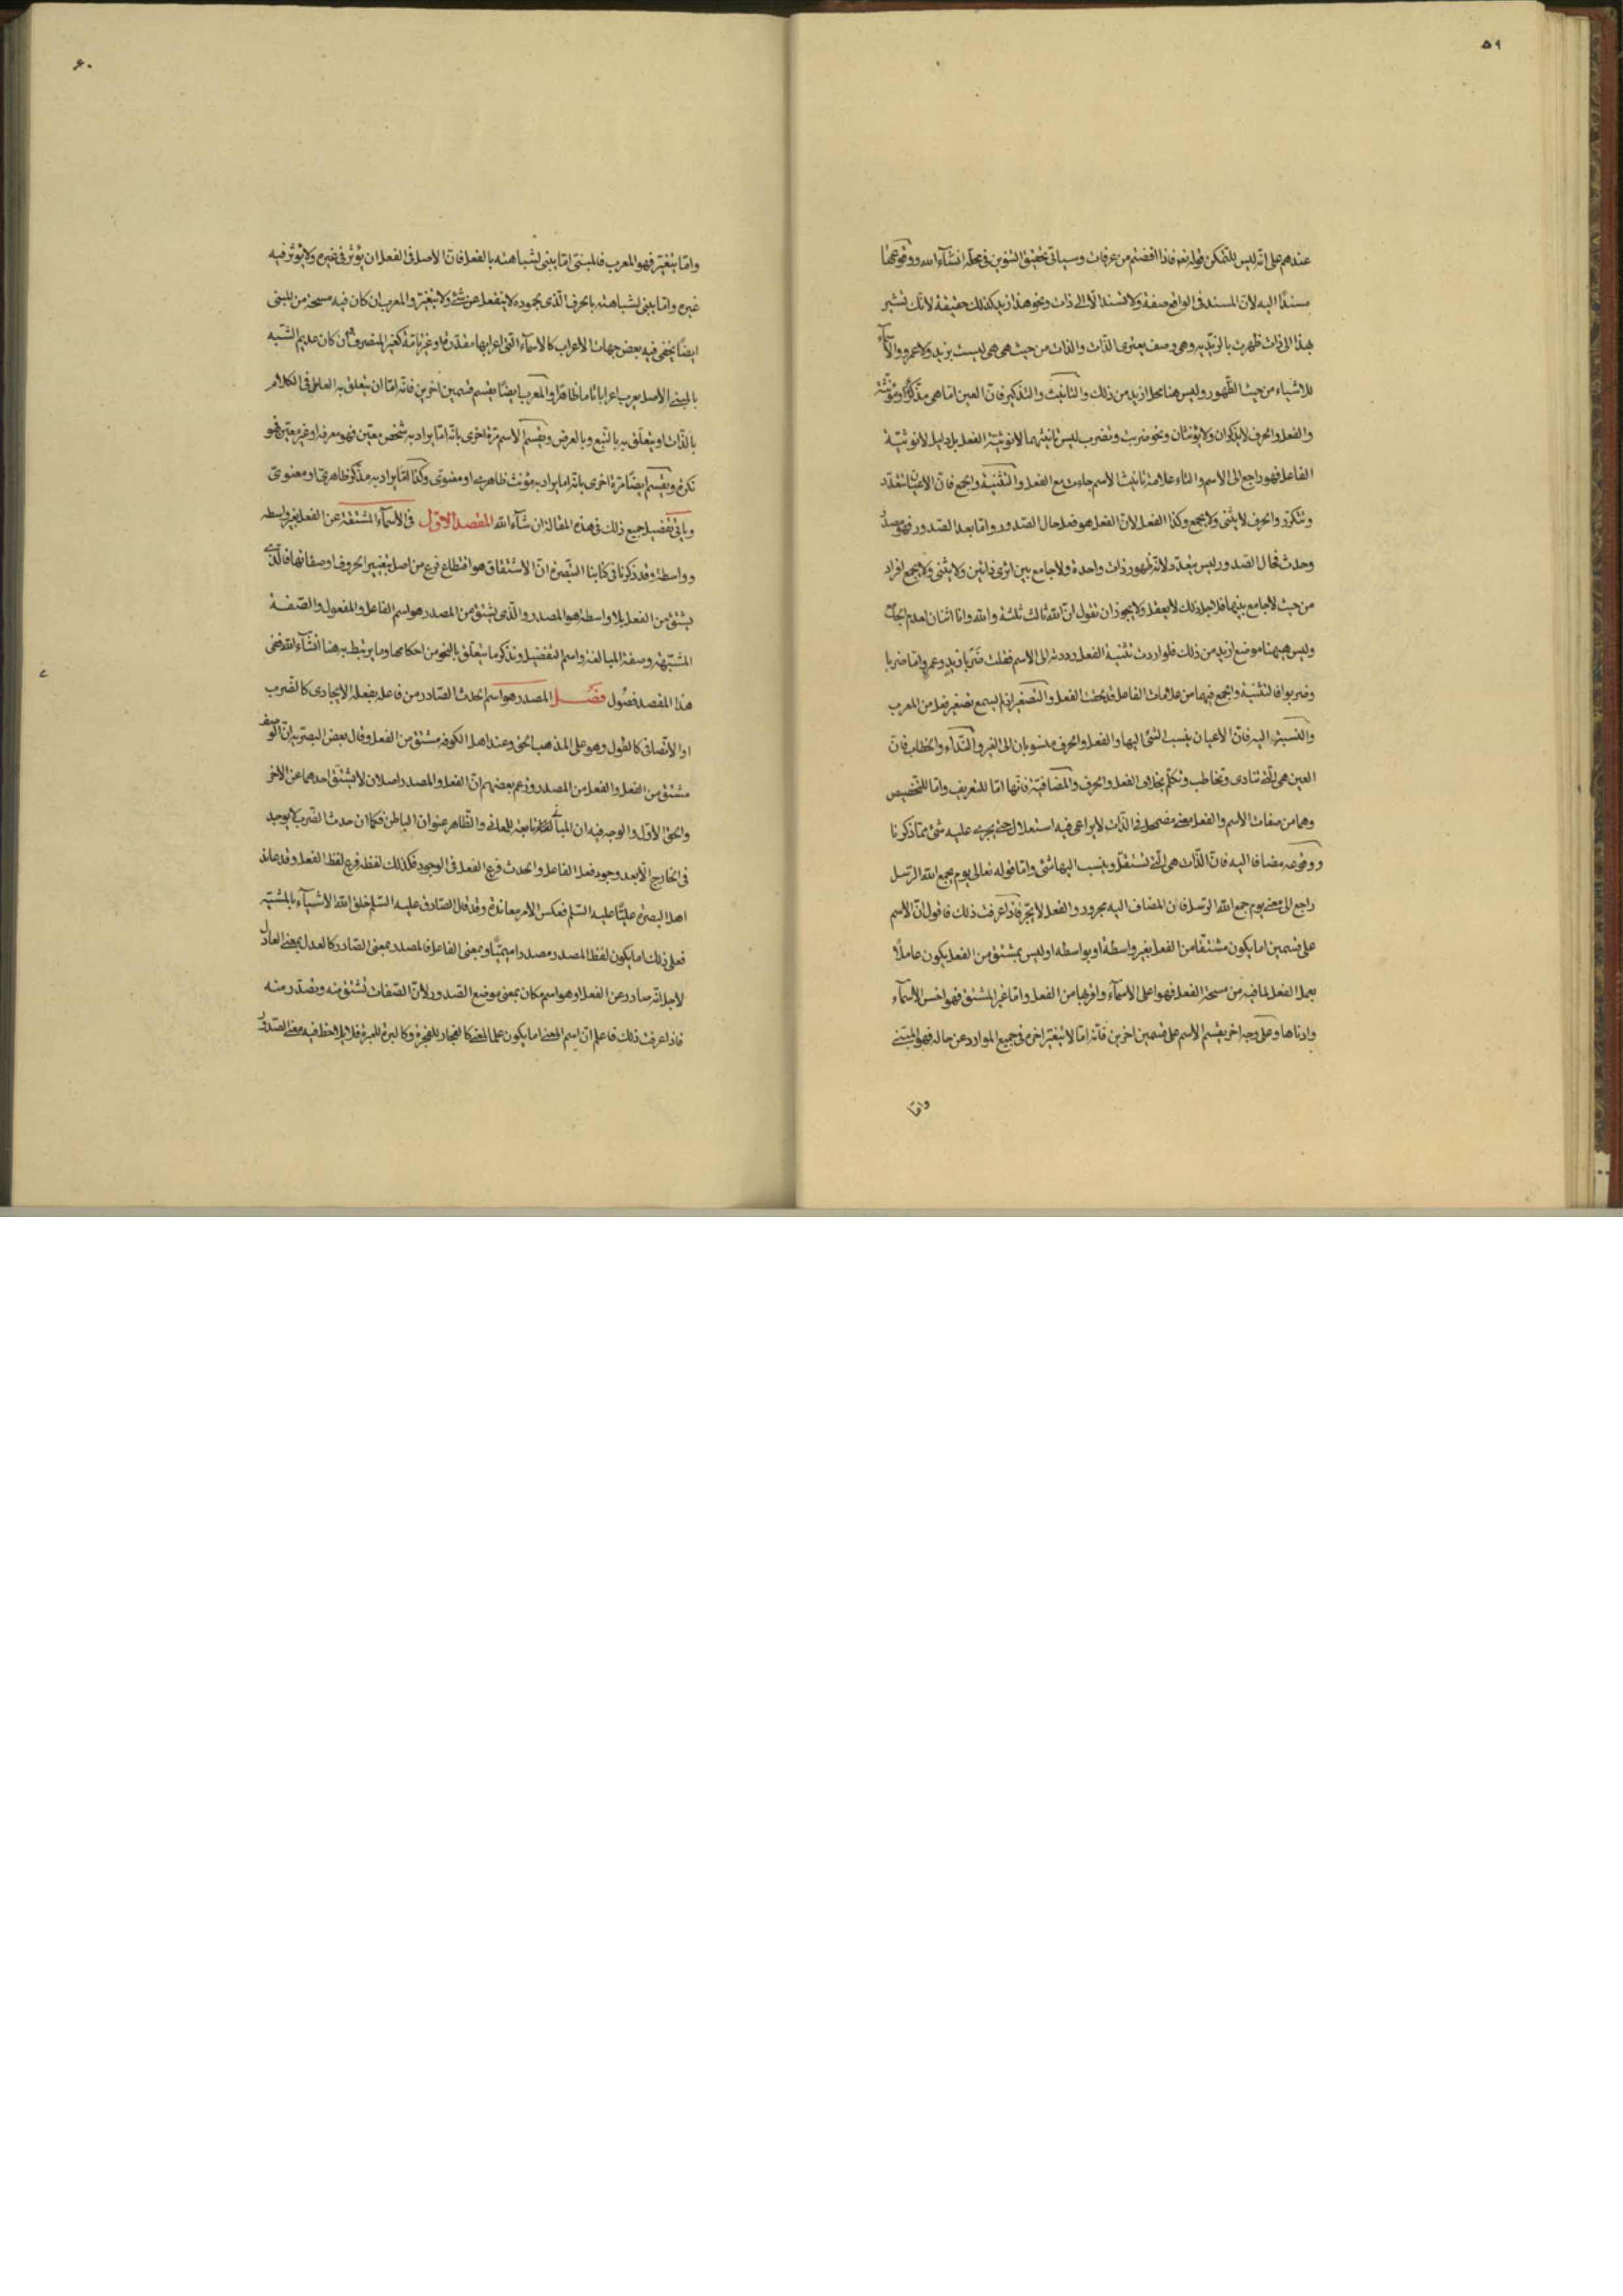 ٥٩
عندهم على انه ليس للتمكن قوله تعه فاذا افضتم من عرفات وسياتى تحقيق التنوين فى محله انشاء الله ووقوعها
مسندًا اليه لان المسند فى الواقع صفة ولا تسند الا الى ذات ونحو هذا زيد كذلك حقيقة لانك تشير
بهذا الى ذات ظهرت بالزيدية وهى وصف يعترى الذات والذات من حيث هى هى ليست بزيد ولا عمرو والاسماء
للاشياء من حيث الظهور وليس هنا محل ازيد من ذلك والتانيث والتذكير فان العين اما هى مذكر او مؤنثة
والفعل والحرف لا يذكران ولا يؤنثان ونحو ضربت وتضرب ليس تانيثهما لانوثية الفعل بل دليل لانوثية
الفاعل فهو راجع الى الاسم والتاء علامة تانيث الاسم جاءت مع الفعل والتثنية والجمع فان الاعيان تتعدد
وتتكرر والحرف لا يثنى ولا يجمع وكذا الفعل لان الفعل هو فعل حال الصدور واما بعد الصدور فهو مصدر
وحدث فحال الصدور ليس بتعدد لانه ظهور ذات واحدة ولا جامع بين اثرى ذاتين ولا يثنى ولا يجمع افراد
من حيث لا جامع بينها فلاجل ذلك لا يعقل ولا يجوز ان تقول ان الله ثالث ثلثة والله وانا اثنان لعدم الجهات
وليس هيهنا موضع ازيد من ذلك فلو اردت تثنية الفعل رددته الى الاسم فقلت ضربا زيد وعمرو واما ضربا
وضربوا فالتثنية والجمع فيهما من علامات الفاعل قد لحقت الفعل والتصغير اذ لم يسمع تصغير فعل من المعرب
والنسبة اليه فان الاعيان ينسب الشئ اليها والفعل والحرف منسوبان الى الغير والنداء والخطاب فان
العين هى التى تنادى وتخاطب وتكلم بخلاف الفعل والحرف والمضافية فانها اما للتعريف واما للتخصيص
وهما من صفات الاسم والفعل معنى مضمحل فى الذات لا يراعى فيه استعلال حتى يجرى عليه شئ مما ذكرنا
ووقوعه مضافا اليه فان الذات هى التى تستقل وينسب اليها شئ واما قوله تعالى يوم يجمع الله الرسل
راجع الى معنى يوم جمع الله الرسل فان المضاف اليه مجرور والفعل لا يجر فاذا عرفت ذلك فاقول ان الاسم
على قسمين اما يكون مشتقا من الفعل بغير واسطة او بواسطه او ليس بمشتق من الفعل يكون عاملًا
بعمل الفعل لما فيه من مسحة الفعل فهو اعلى الاسماء واقربها من الفعل واما غير المشتق فهو اخس الاسماء
وادناها وعلى وجه اخر يقسم الاسم على قسمين اخرين فانه اما لا يتغير اخره فى جميع الموارد عن حاله فهو المبنى
واما
٦٠
واما يتغير فهو المعرب فالمبنى اما يبنى لشباهته بالفعل فان الاصل فى الفعل ان يؤثر فى غيره ولا يؤثر فيه
غيره واما يبنى لشباهته بالحرف الذى بجموده لا ينفعل عن شئ ولا يتغير والمعرب ان كان فيه مسحة من المبنى
ايضًا يخفى فيه بعض جهات الاعراب كالاسماء التى اعرابها مقدرة او غير تامة كغير المنصرف وان كان عديم الشبه
بالمبنى الاصل يعرب اعرابا تاما ظاهرًا والمعرب ايضًا يقسم قسمين اخرين فانه اما ان يتعلق به العامل فى الكلام
بالذات او يتعلق به بالتبع وبالعرض ويقسم الاسم مرة اخرى بانه اما يراد به شخص معين فهو معرفه او غير معين فهو
نكرة ويقسم ايضًا مرة اخرى بانه اما يراد به مؤنث ظاهرى او معنوى وكذا اما يراد به مذكر ظاهرى او معنوى
وياتى تفصيل جميع ذلك فى هذه المقالة ان شاء الله المقصد الاول فى الاسماء المشتقة عن الفعل بغير واسطه
وواسطة وقد ذكرنا فى كتابنا التبصرة ان الاشتقاق هو اقتطاع فرع من اصل بتغيير الحروف او صفاتها فالذى
يشتق من الفعل بلا واسطة هو المصدر والذى يشتق من المصدر هو اسم الفاعل والمفعول والصفة
المشبهه وصفة المبالغة واسم التفضيل ونذكر ما يتعلق بالنحو من احكامها وما يرتبط به هنا انشاء الله ففى
هذا المقصد فصول فصل المصدر هو اسم الحدث الصادر من فاعله بفعله الايجادى كالضرب
او الاتصافى كالطول وهو على المذهب الحق وعند اهل الكوفه مشتق من الفعل وقال بعض البصريه ان الوصف
مشتق من الفعل والفعل من المصدر وزعم بعضهم ان الفعل والمصدر اصلان لا يشتق احدهما عن الاخر
والحق الاول والوجه فيه ان المبانى تابعة للمعانى والظاهر عنوان الباطن فكما ان حدث الضرب لا يوجد
فى الخارج الا بعد وجود فعل الفاعل والحدث فرع الفعل فى الوجود فكذلك لفظه فرع لفظ الفعل وقد عاند
اهل البصرة عليًا عليه السلم فعكس الامر معاندة وقد قال الصادق عليه السلم خلق الله الاشياء بالمشية
فعلى ذلك اما يكون لفظ المصدر مصدرا ميميًا وبمعنى الفاعل فالمصدر بمعنى الصادر كالعدل بمعنى العادل
لاجل انه صادر عن الفعل او هو اسم مكان بمعنى موضع الصدور لان الصفات تشتق منه وتصدر منه
فاذا عرفت ذلك فاعلم ان اسم المعنى اما يكون علما لمعنى كالفجار للفجرة وكالبرة للمبرة فلا يلاحظ فيه معنى الصدور